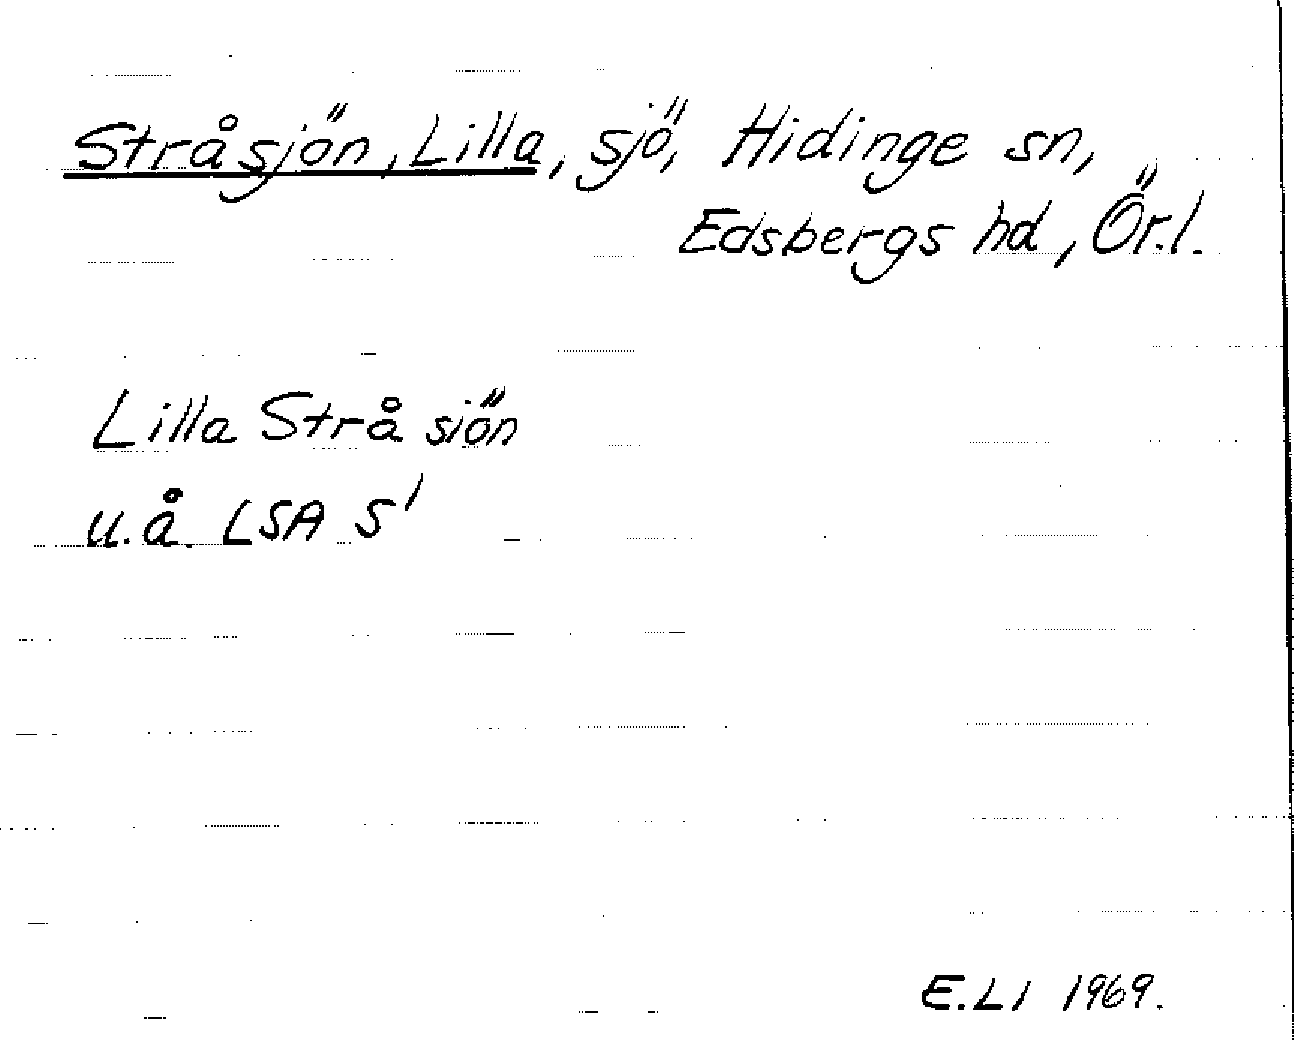 Stråsjön, Lilla, sjö, Hidinge sn,
Edsbergs hd, Ör.l.
Lilla Strå siön
u.å. LSA S'
E.LI 1969.